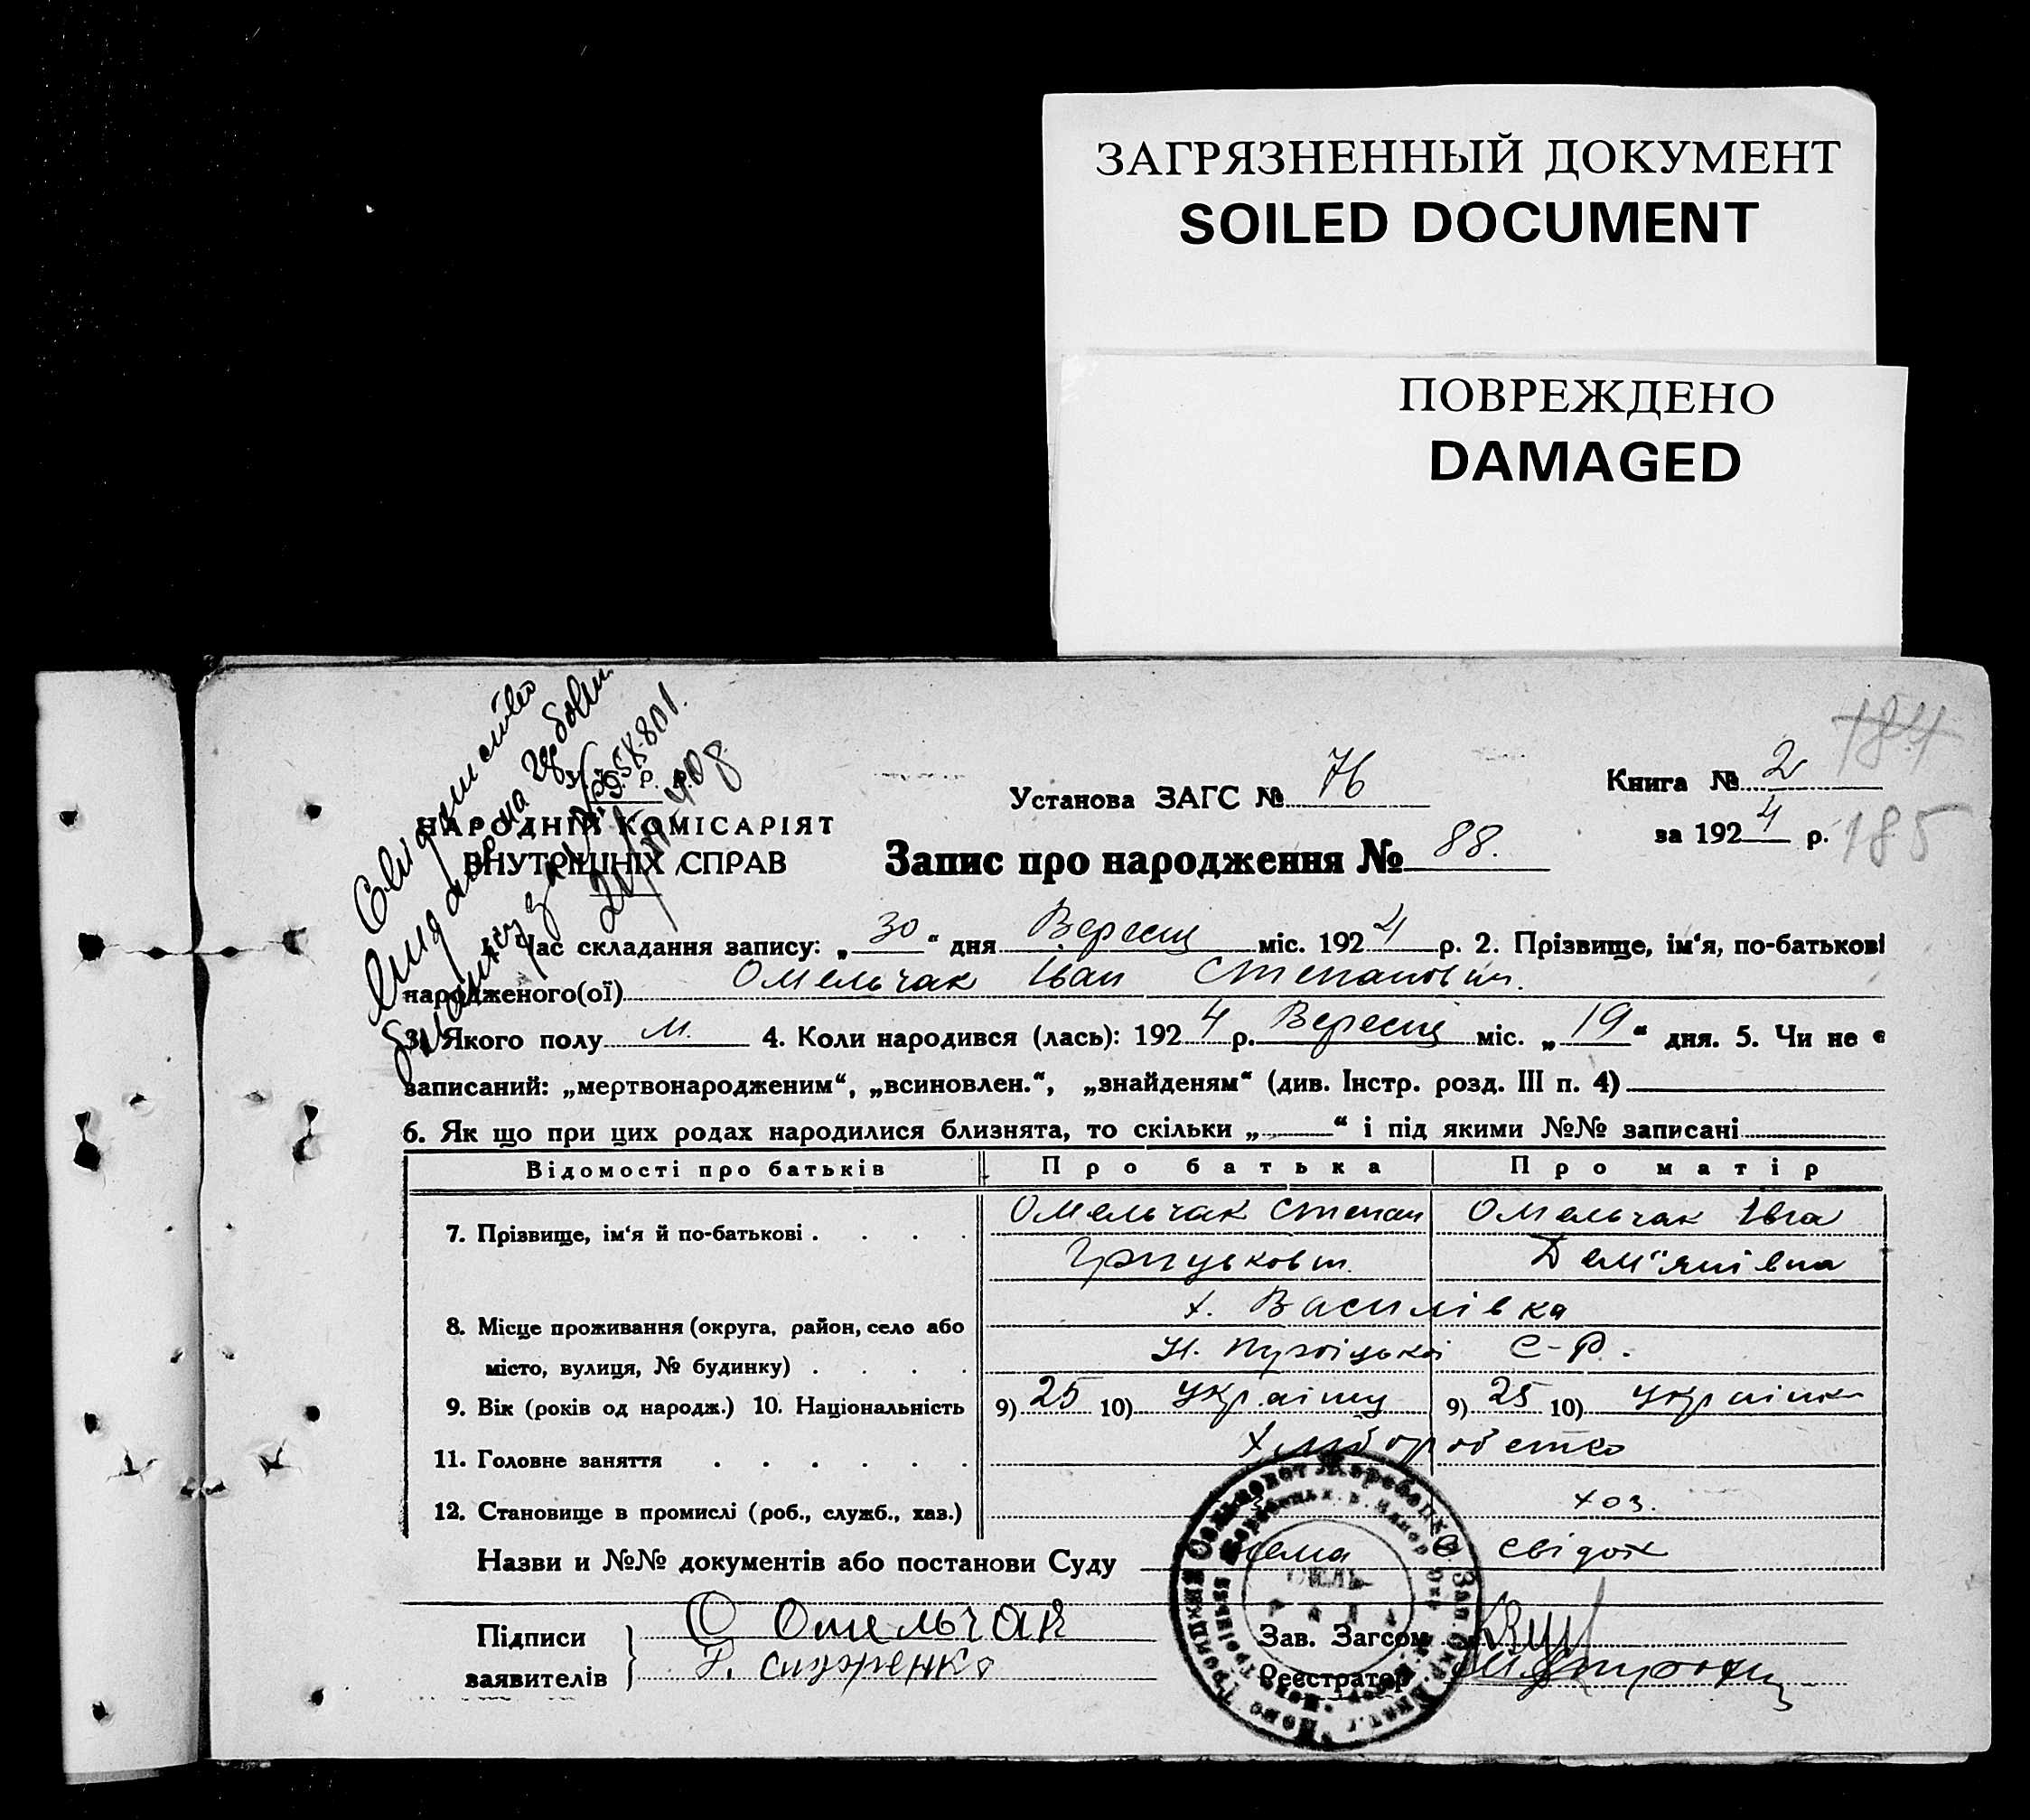 ЗАГРЯЗНЕННЫЙ ДОКУМЕНТ
SOILED DOCUMENT
ПОВРЕЖДЕНО
DAMAGED
184
185
У. С. Р. Р.
НАРОДНІЙ КОМІСАРІЯТ
ВНУТРІШНІХ СПРАВ
Установа ЗАГС № 76
Книга № 2
за 1924 р.
Запис про народження № 88.
Час складання запису: „30“ дня Вересня міс. 1924 р. 2. Прізвище, ім‘я, по-батькові
народженого(ої) Омельчак Іван Степанович.
3. Якого полу м. 4. Коли народився (лась): 1924 р. Вересня міс. „19“ дня. 5. Чи не є
записаний: „мертвонародженим“, „всиновлен.“, „знайденям“ (див. Інстр. розд. III п. 4)
6. Як що при цих родах народилися близнята, то скільки „ “ і під якими №№ записані
Відомості про батьків Про батька Про матір
7. Прізвище, ім‘я й по-батькові . . . . Омельчак Степан Омельчак Івга
Грицькович Дем'янівна
х. Василівка
8. Місце проживання (округа, район, село або
місто, вулиця, № будинку) . . . . С-Р.
9. Вік (років од народж.) 10. Національність 9) 25 10) Україн 9) 25 10) україн
11. Головне заняття . . . . . . хліборобство
12. Становище в промислі (роб., служб., хаз.) хоз.
Назви и №№ документів або постанови Суду нема свідок
Підписи
заявителів
О Омельчак
Зав. Загсом
Реєстратор